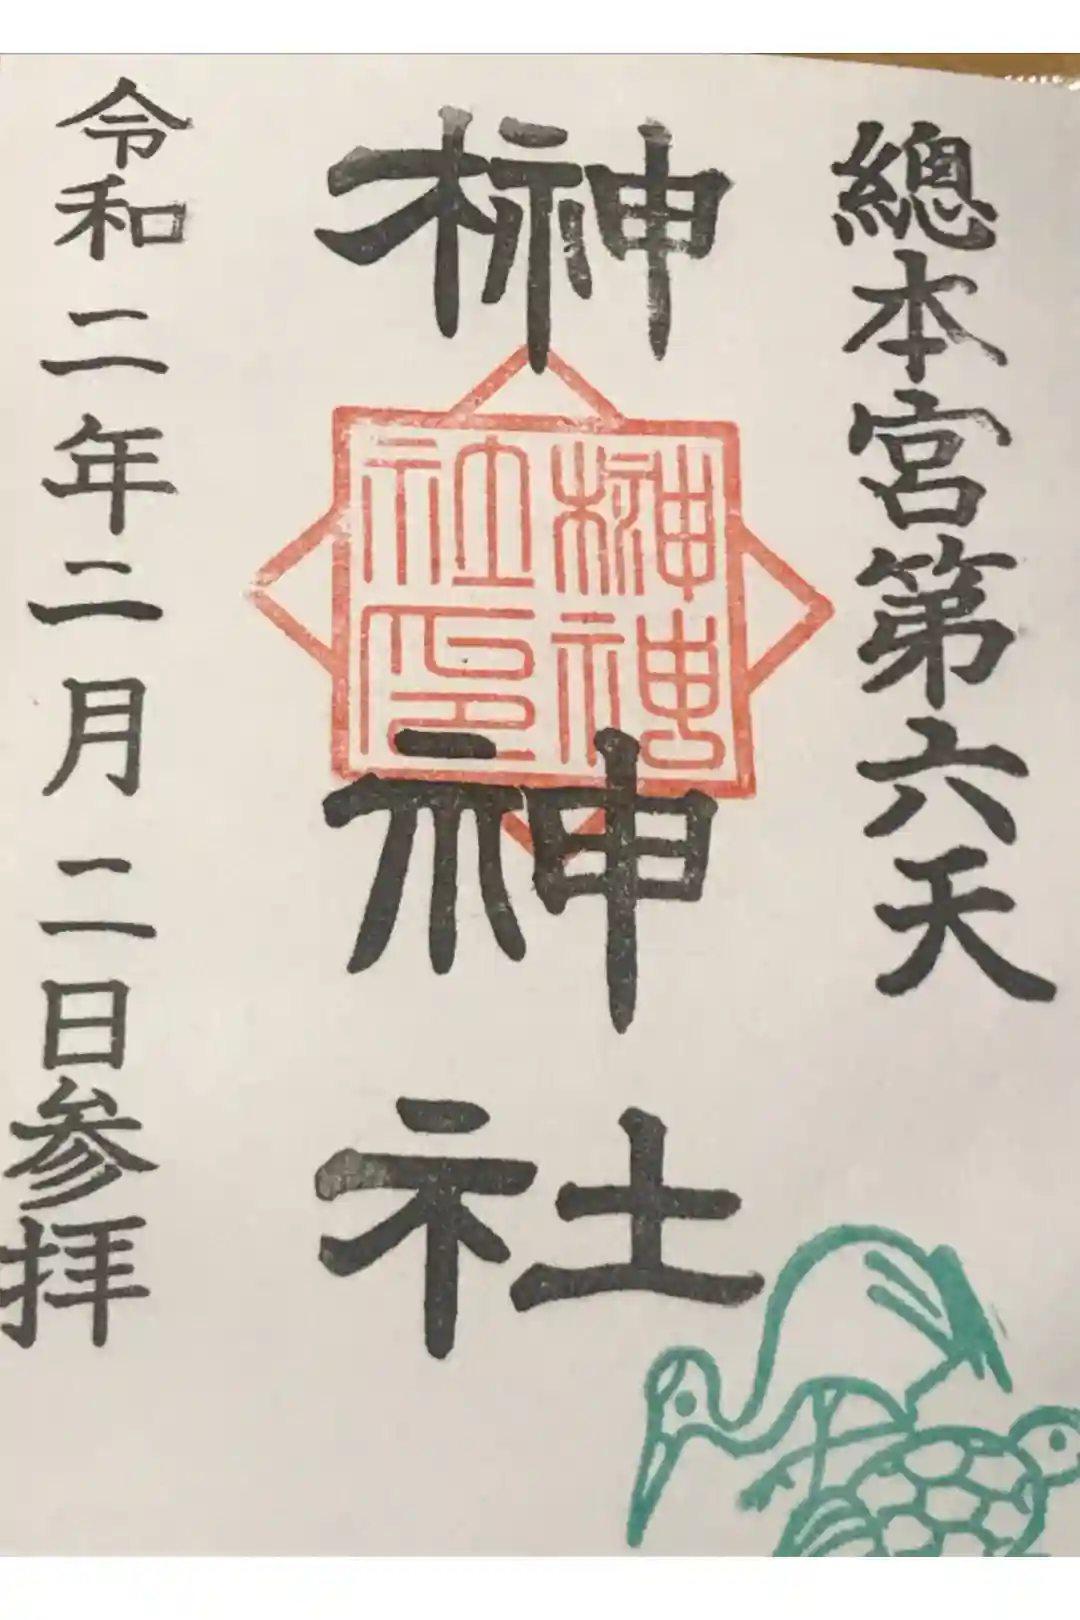 總本宮第六天
榊神社
榊神社印
令和二年二月二日参拝